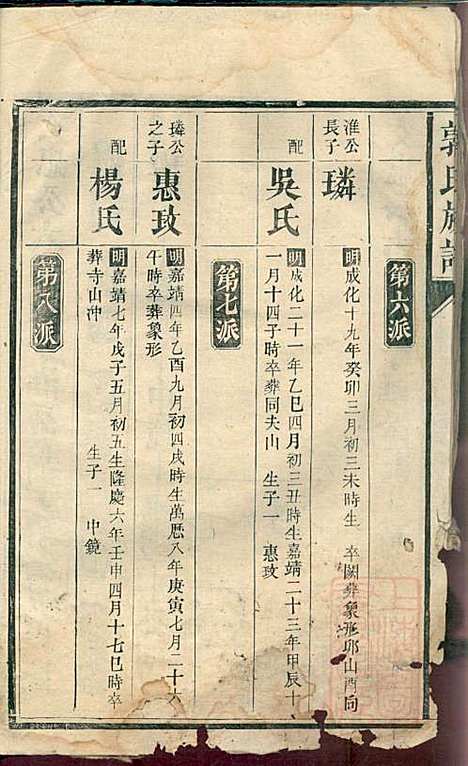 郭氏族譜
第六派
淮公長子
璘
明成化十九年癸卯三月初三未時生 卒闕葬象形卯山酉向
配
吳氏
明成化二十一年乙巳四月初三丑時生嘉靖二十三年甲辰十
一月十四子時卒葬同夫山 生子一 惠玫
第七派
璘公之子
惠玫
明嘉靖四年乙酉九月初四戌時生萬曆八年庚寅七月二十六
午時卒葬象形
配
楊氏
明嘉靖七年戊子五月初五生隆慶六年壬申四月十七巳時卒
葬寺山冲 生子一 中鏡
第八派